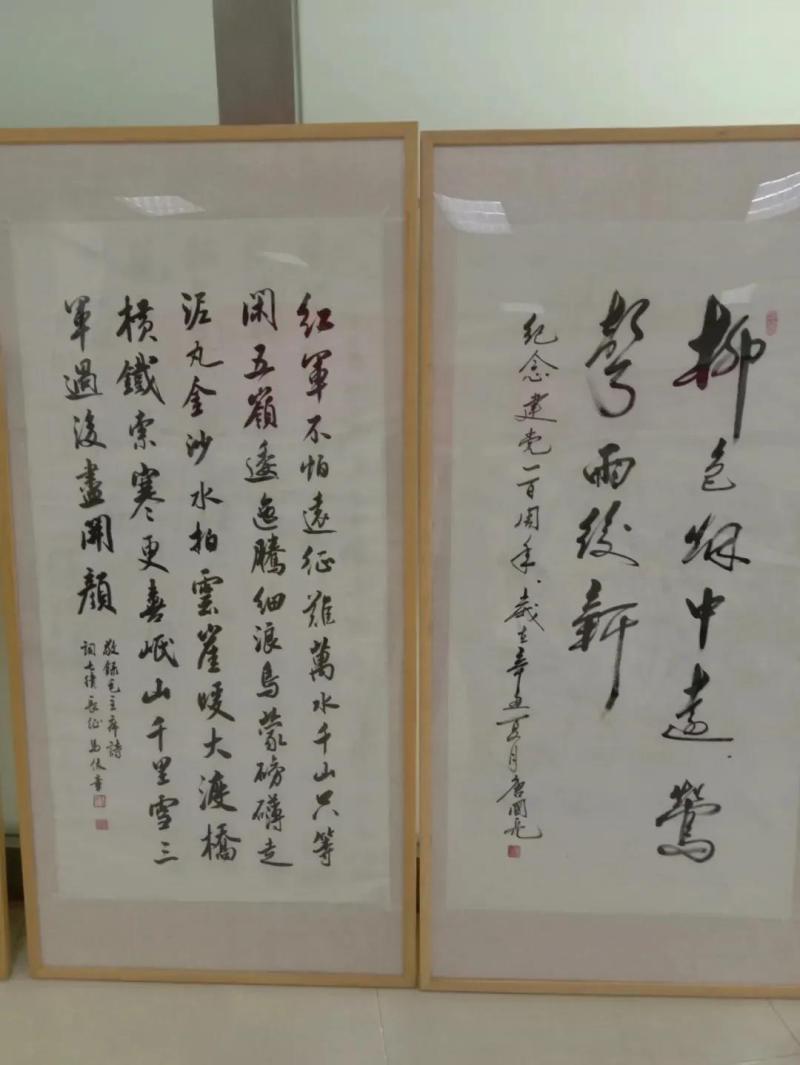 紅軍不怕遠征難萬水千山只等
閑五嶺逶迤騰細浪烏蒙磅礴走
泥丸金沙水拍雲崖暖大渡橋
橫鐵索寒更喜岷山千里雪三
軍過後盡開顏
敬錄毛主席詩
詞七律長征 馬俊書
柳色烟中遠鶯
聲雨後新
紀念建党一百周年歲在辛丑夏月唐國亮